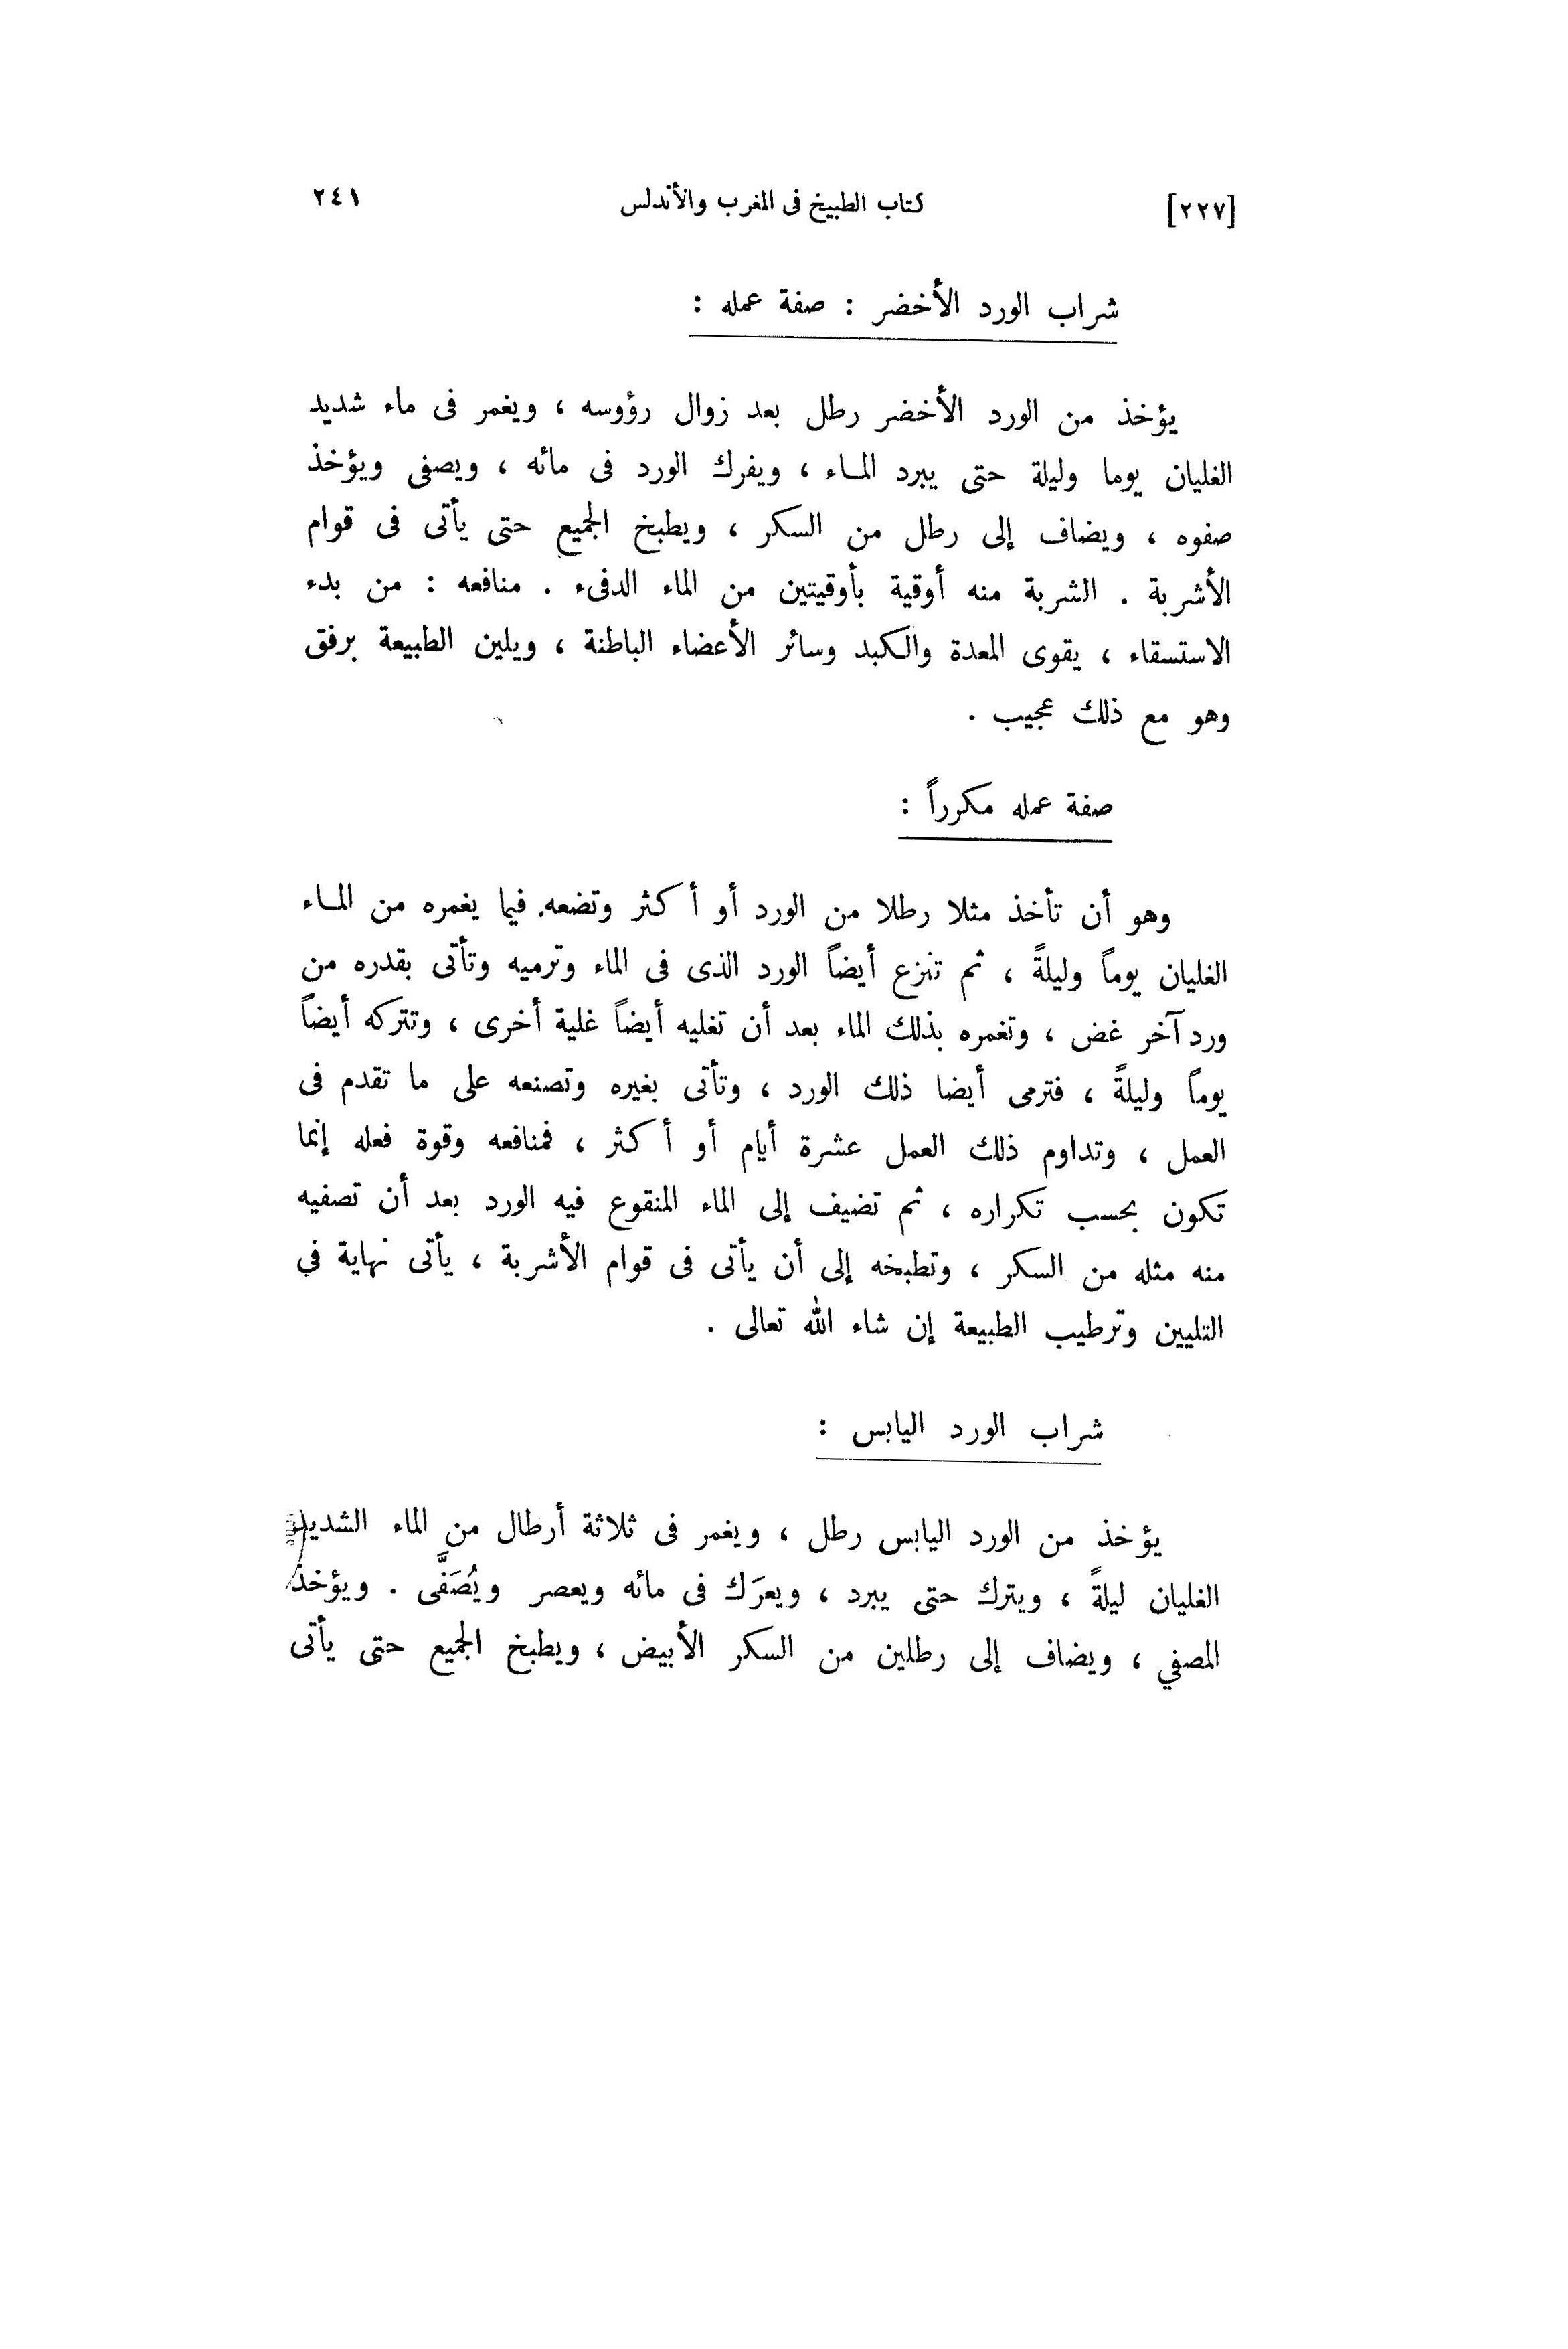 [٢٢٧] كتاب الطبيخ فى المغرب والأندلس ٢٤١
شراب الورد الأخضر : صفة عمله :
يؤخذ من الورد الأخضر رطل بعد زوال رؤوسه ، ويغمر فى ماء شديد
الغليان يوما وليلة حتى يبرد المـاء ، ويفرك الورد فى مائه ، ويصفى ويؤخذ
صفوه ، ويضاف إلى رطل من السكر ، ويطبخ الجميع حتى يأتى فى قوام
الأشربة . الشربة منه أوقية بأوقيتين من الماء الدفىء . منافعه : من بدء
الاستسقاء ، يقوى المعدة والكبد وسائر الأعضاء الباطنة ، ويلين الطبيعة برفق
وهو مع ذلك عجيب .
صفة عمله مكرراً :
وهو أن تأخذ مثلا رطلا من الورد أو أكثر وتضعه فيما يغمره من المـاء
الغليان يوماً وليلةً ، ثم تنزع أيضاً الورد الذى فى الماء وترميه وتأتى بقدره من
ورد آخر غض ، وتغمره بذلك الماء بعد أن تغليه أيضاً غلية أخرى ، وتتركه أيضاً
يوماً وليلةً ، فترمى أيضا ذلك الورد ، وتأتى بغيره وتصنعه على ما تقدم فى
العمل ، وتداوم ذلك العمل عشرة أيام أو أكثر ، فمنافعه وقوة فعله إنما
تكون بحسب تكراره ، ثم تضيف إلى الماء المنقوع فيه الورد بعد أن تصفيه
منه مثله من السكر ، وتطبخه إلى أن يأتى فى قوام الأشربة ، يأتى نهاية في
التليين وترطيب الطبيعة إن شاء الله تعالى .
شراب الورد اليابس :
يؤخذ من الورد اليابس رطل ، ويغمر فى ثلاثة أرطال من الماء الشديد
الغليان ليلةً ، ويترك حتى يبرد ، ويعرَك فى مائه ويعصر ويُصَفَّى . ويؤخذ
المصفي ، ويضاف إلى رطلين من السكر الأبيض ، ويطبخ الجميع حتى يأتى